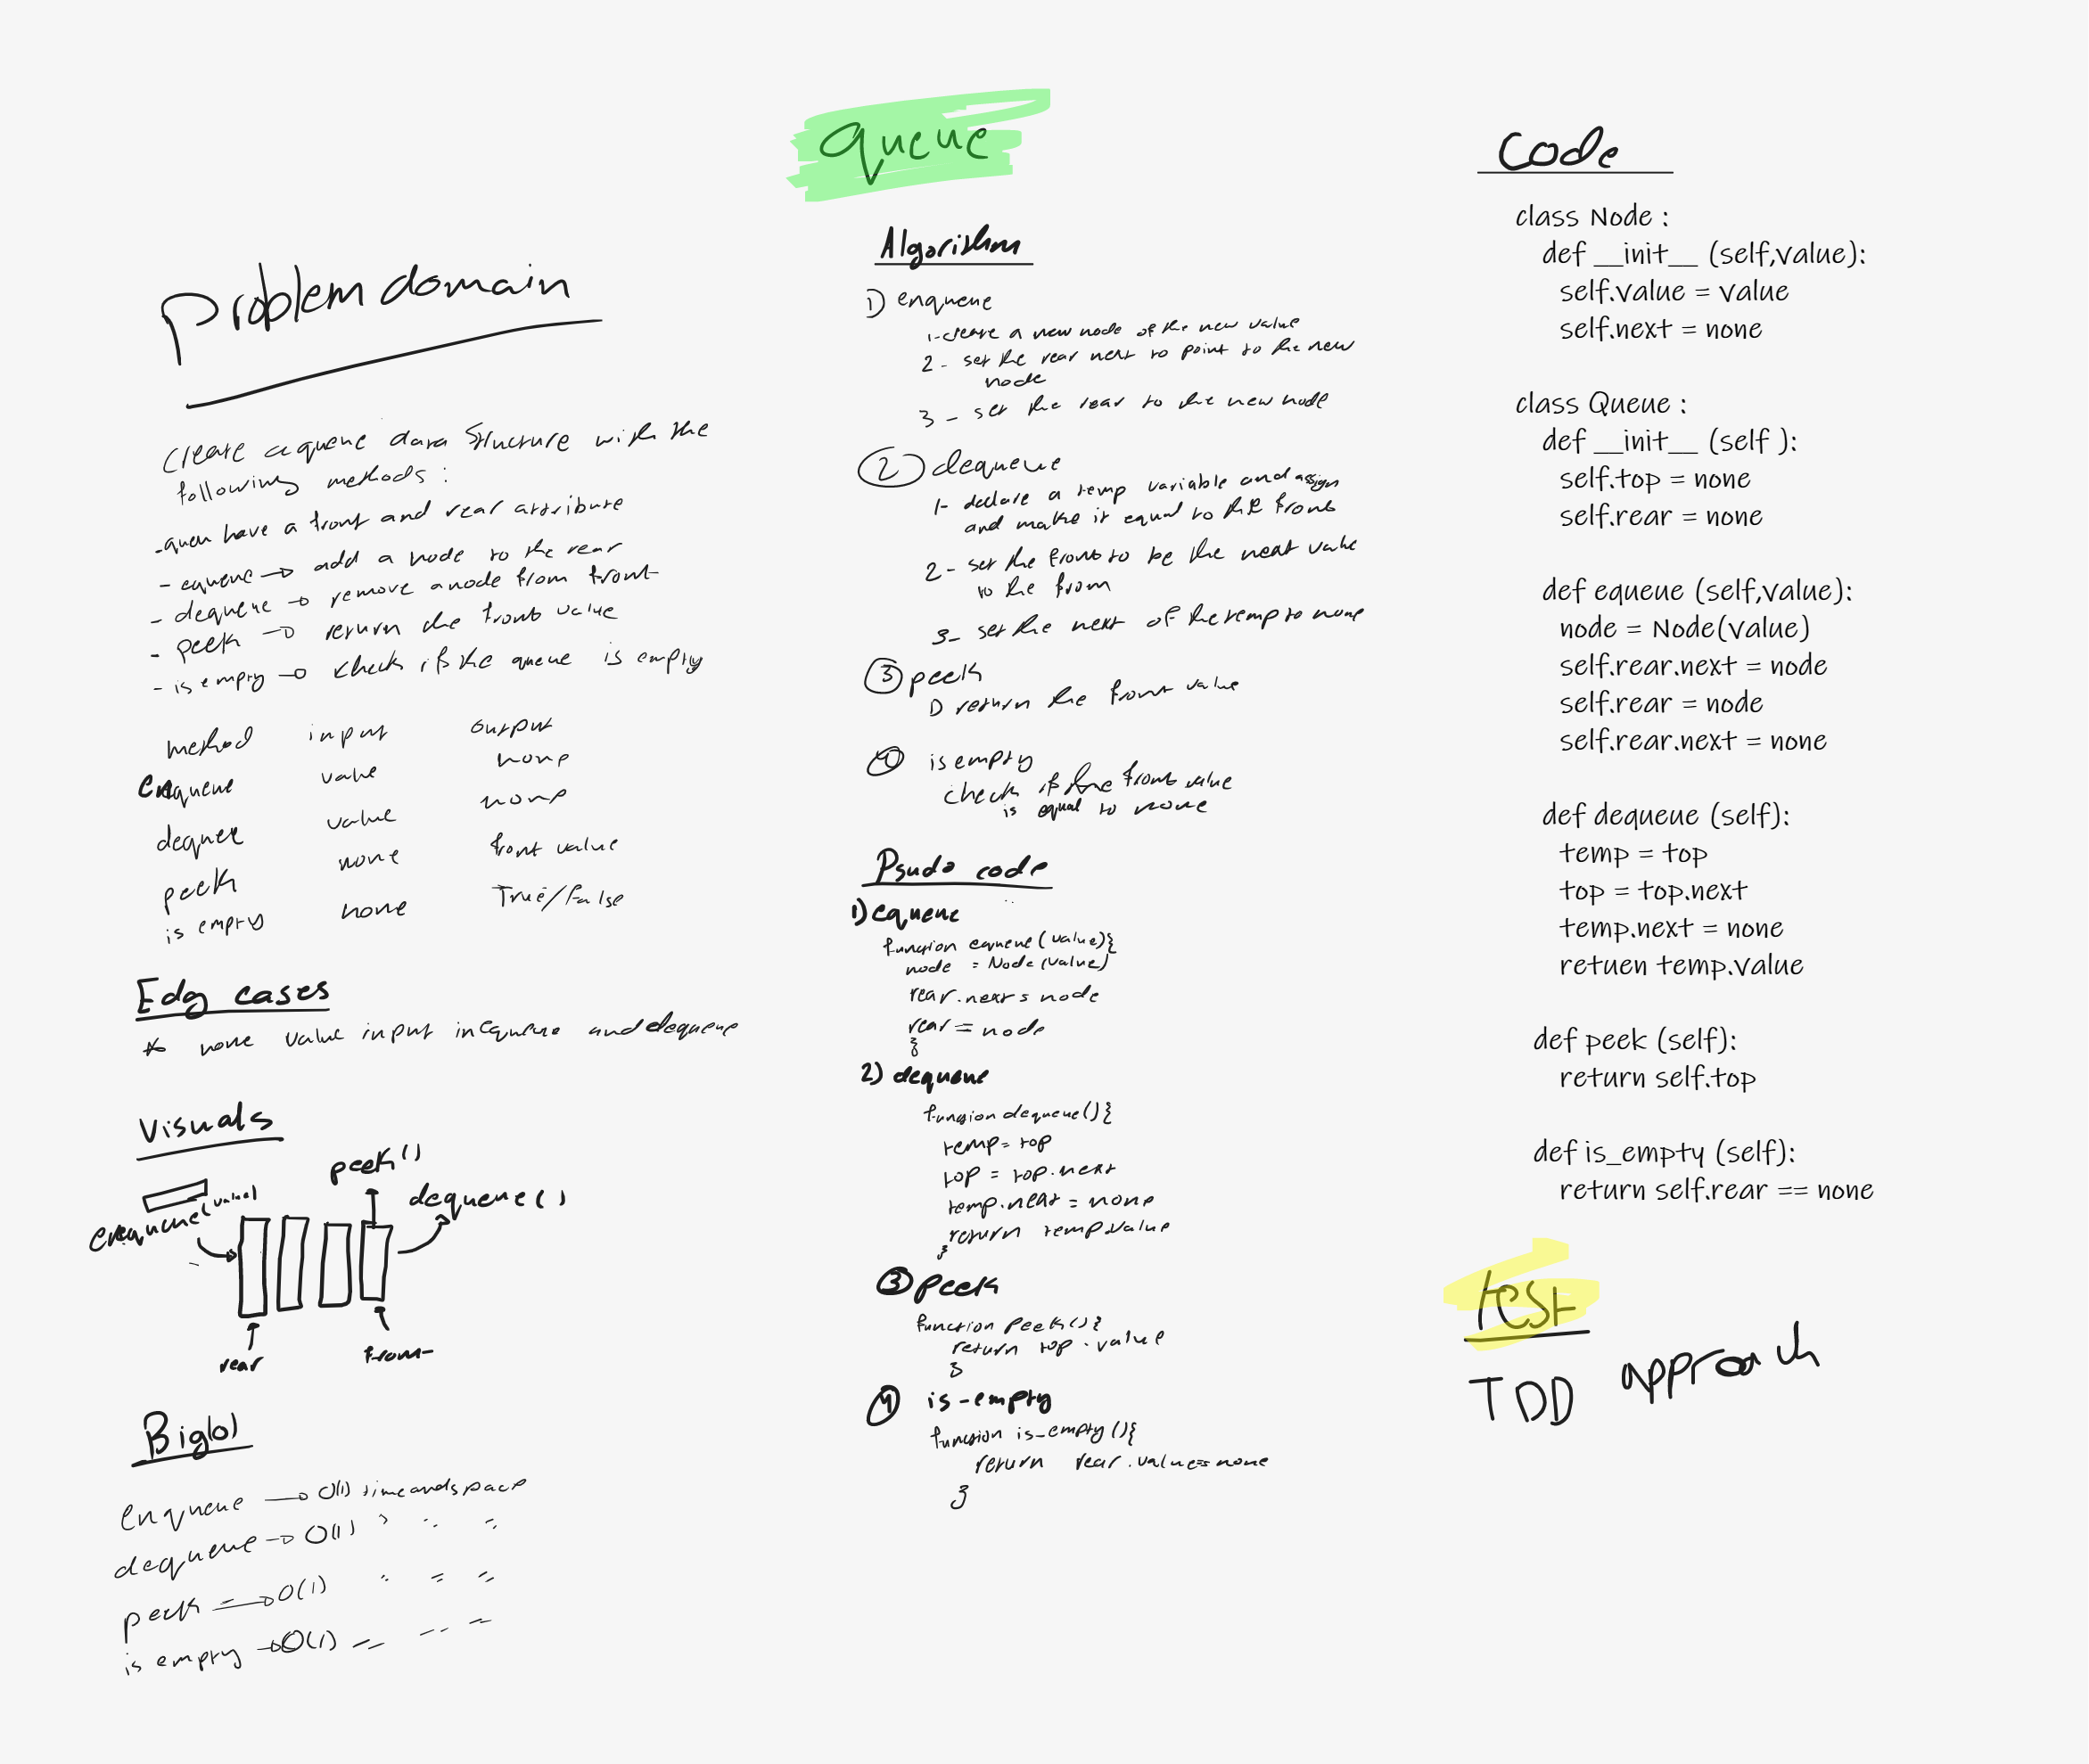 queue
Problem domain
Create a queue data structure with the
following methods:
- quen have a front and rear attribute
- equeue → add a node to the rear
- dequeue → remove a node from front
- peek → return the front value
- is empty → check if the queue is empty
method input output
enqueue value none
dequee value none
peek none front value
is empty none True/False
Edg cases
* none value input in equeue and dequeue
Visuals
peek()
dequeue()
enqueue(value)
rear
front
Big(o)
enqueue → O(1) time and space
dequeue → O(1) " " "
peek → O(1) " " "
is empty → O(1) " " "
Algorithm
1) enqueue
1- create a new node of the new value
2- set the rear next to point to the new
node
3- set the rear to the new node
2 dequeue
1- declare a temp variable and assign
and make it equal to the front
2- set the front to be the next value
to the from
3- set the next of the temp to none
3 peek
1) return the front value
4 is empty
check if the front value
is equal to none
Psudo code
1) equeue
function equeue(value){
node = Node(value)
rear.next = node
rear = node
}
2) dequeue
function dequeue(){
temp = top
top = top.next
temp.next = none
return temp.value
}
3 peek
function peek(){
return top.value
}
4 is-empty
function is_empty(){
return rear.value == none
}
Code
class Node :
def __init__ (self,value):
self.value = value
self.next = none
class Queue :
def __init__ (self ):
self.top = none
self.rear = none
def equeue (self,value):
node = Node(value)
self.rear.next = node
self.rear = node
self.rear.next = none
def dequeue (self):
temp = top
top = top.next
temp.next = none
retuen temp.value
def peek (self):
return self.top
def is_empty (self):
return self.rear == none
test
TDD approach